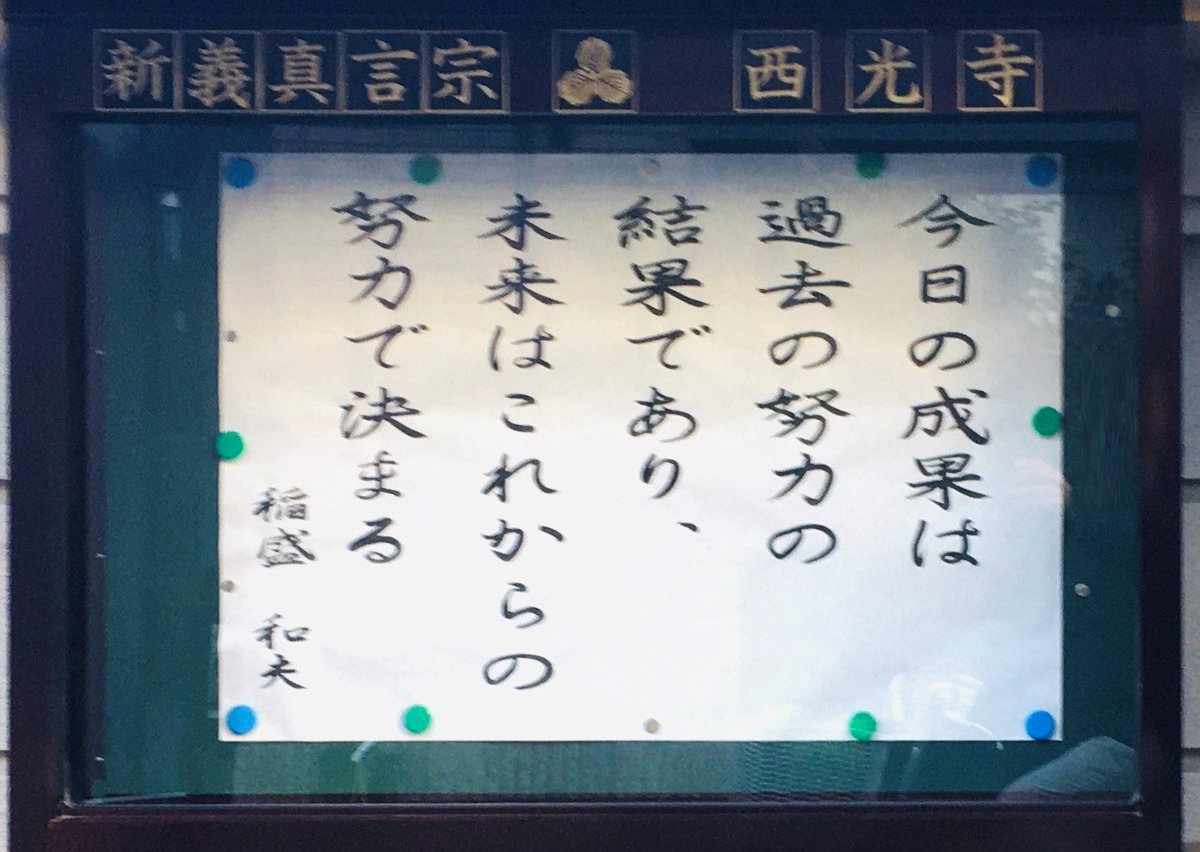 新義真言宗 西光寺
今日の成果は
過去の努力の
結果であり、
未来はこれからの
努力で決まる
稲盛 和夫